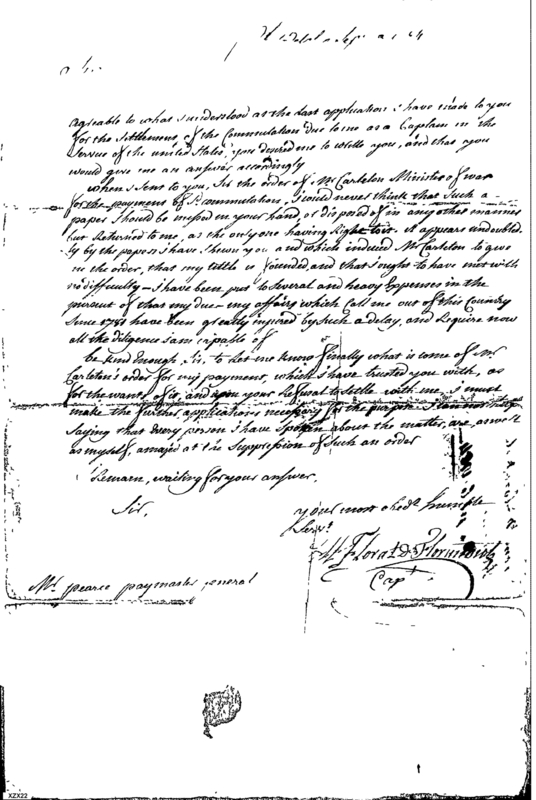 Sir
agreable to what I understood at the Last application I have made to you
for the Settlement of the Commutation due to me as a Captain in the
Service of the united States, you desired me to write you, and that you
would give me an answer accordingly
when I Sent to you, Sir the order of Mr Carleton Minister of war
for the payment of Commutation, I would never think that Such a
paper Should be in your hand, or disposed of in any other manner
but Returned to me, as the only one having Right to it. it appears undoubted-
ly by the papers I have Shewn you and which induced Mr Carleton to give
me the order, that my title is founded, and that I ought to have met with
no difficulty — I have been put to Several and heavy Expences in the
pursuit of that my due — my affairs which Call me out of this Country
Since 1781 have been greatly injured by Such a delay, and Require now
all the diligence I am capable of
be kind Enough, Sir, to Let me know finally what is come of Mr
Carleton's order for my payment, which I have trusted you with, as
for the want of it, and upon your Refusal to Settle with me, I must
make the further applications necessary for the purpose I can not help
Saying that Every person I have Spoken about the matter, are, as well
as myself, amazed at the Suppression of Such an order
I Remain, waiting for your answer,
Sir,
your most obedt humble
Servt
Florat de Florimont
Capt
Mr pearce paymaster general
XZX22